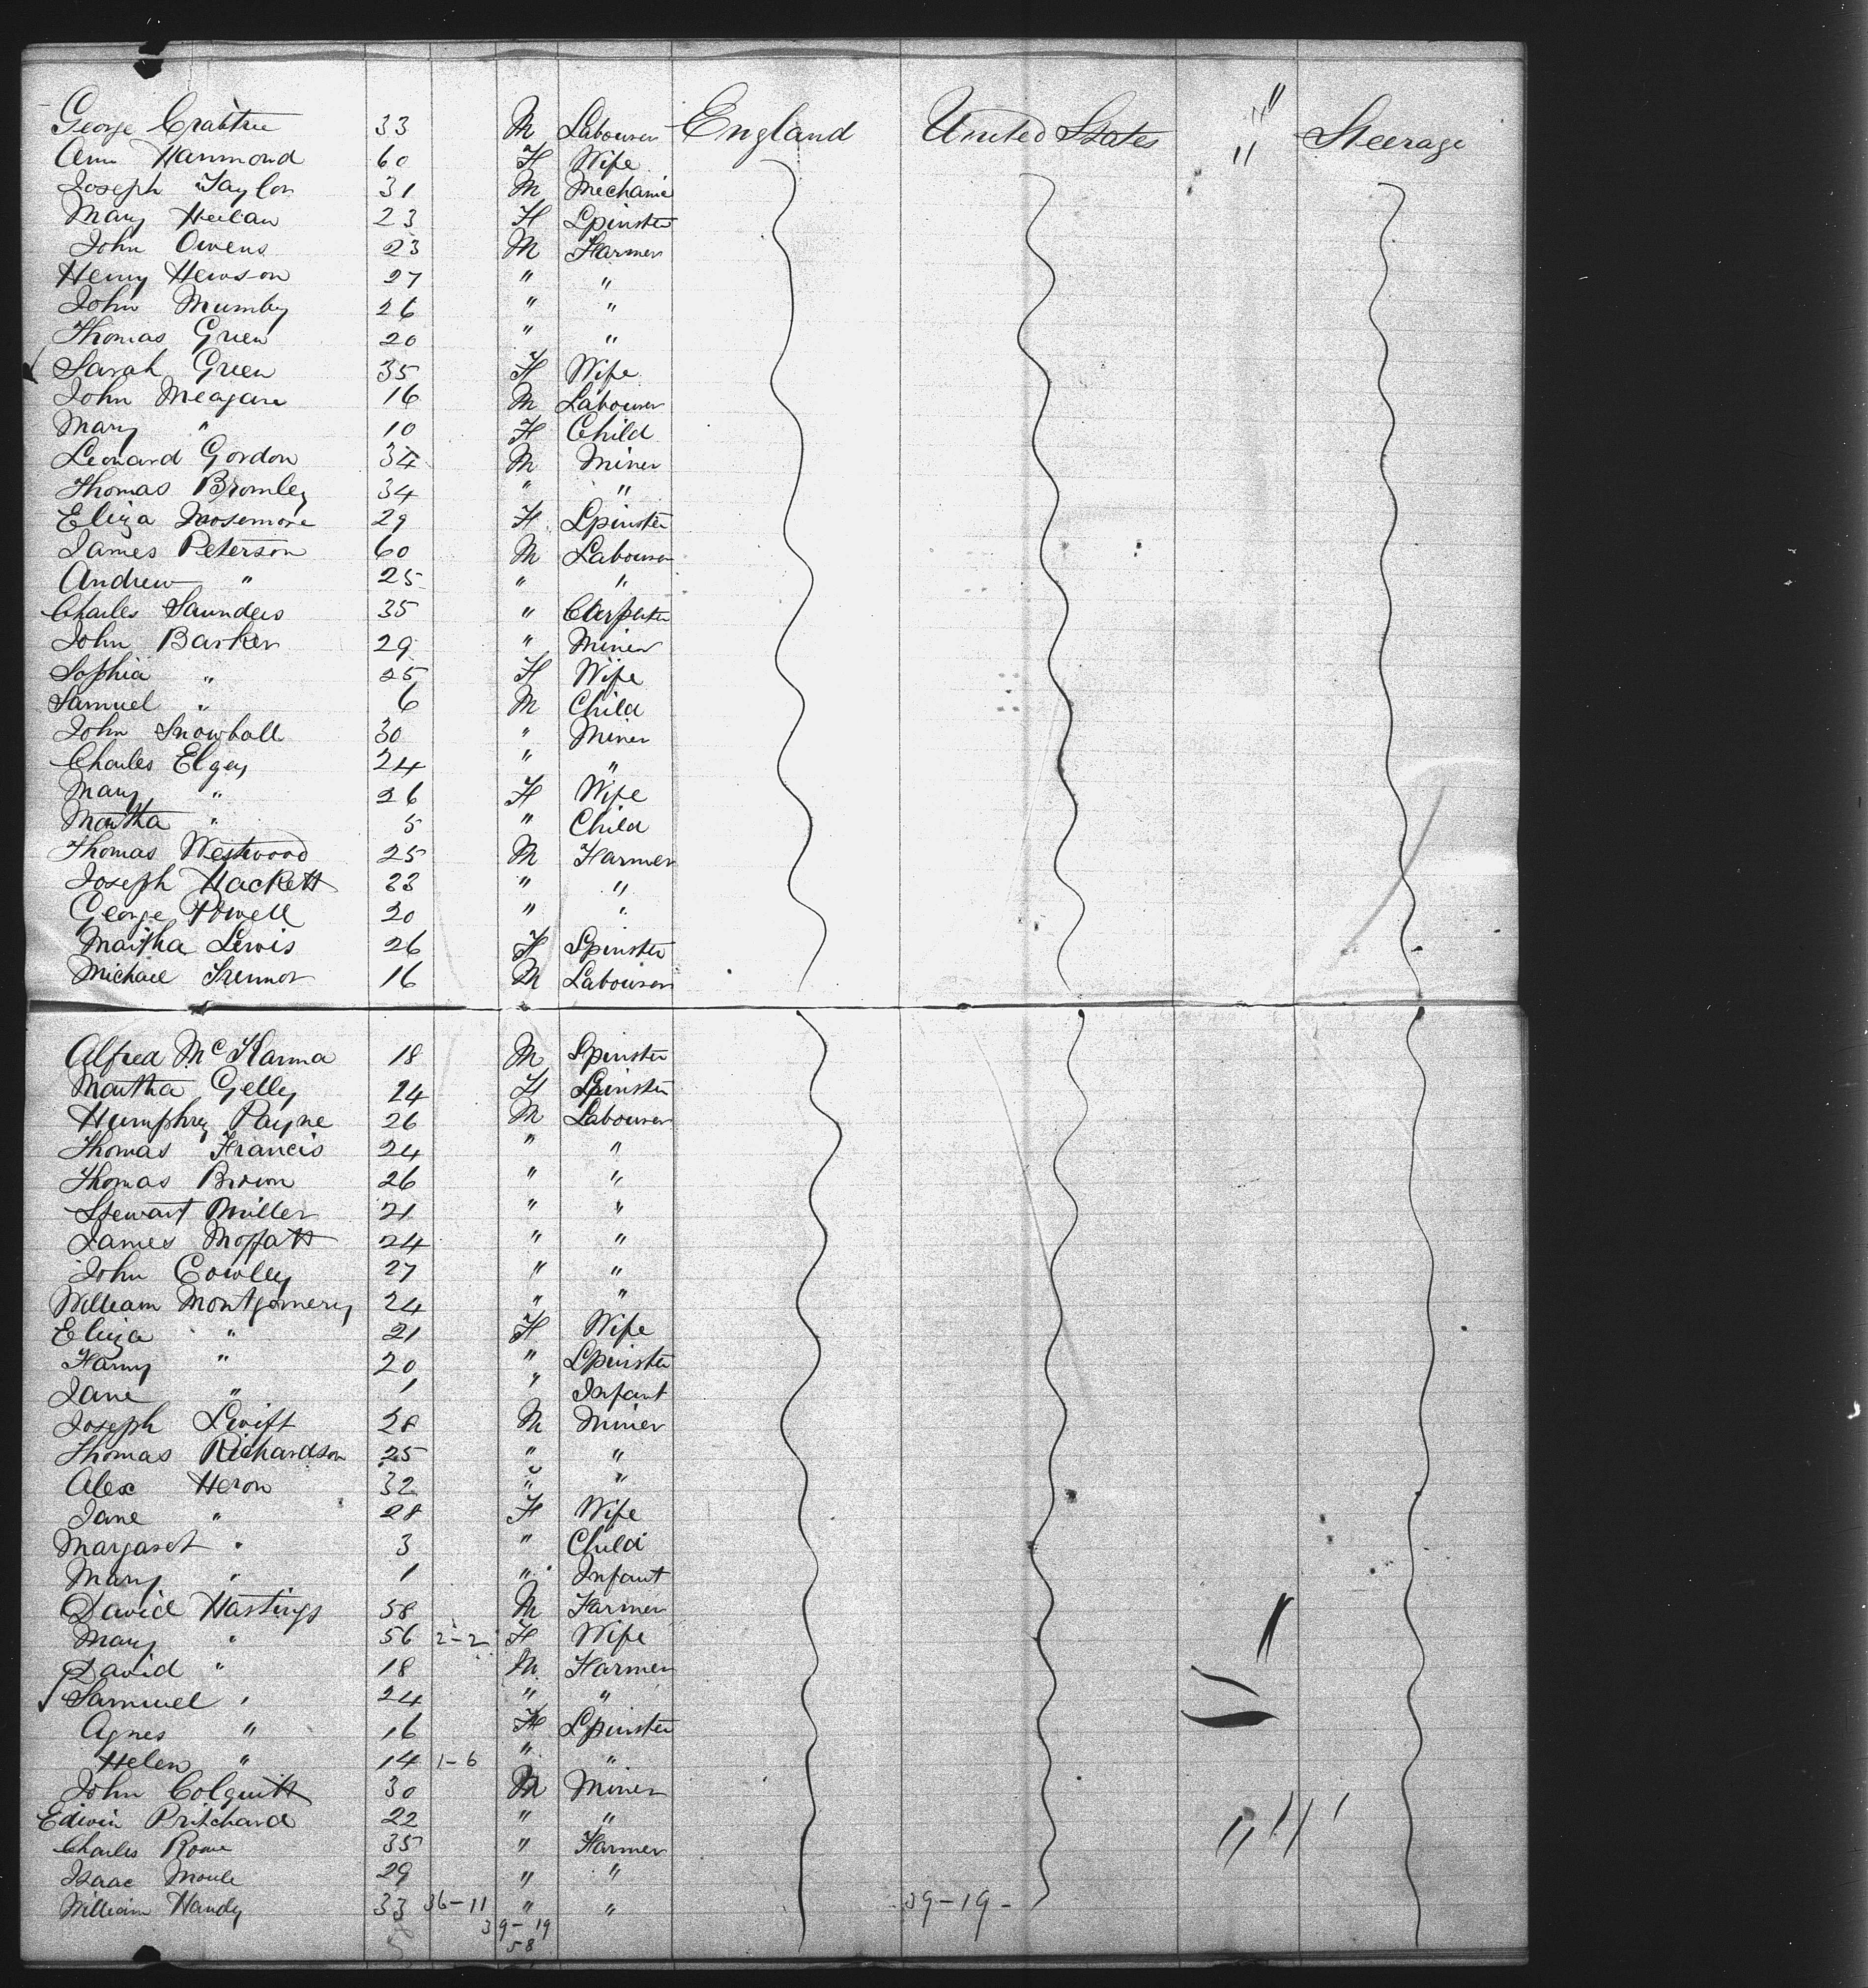 George Crabtree 33 M Labourer England United States " Steerage
Ann Hammond 60 F Wife "
Joseph Taylor 31 M Mechanic
Mary 23 F Spinster
John Owens 23 M Farmer
Henry Hewson 27 " "
John Mumby 26 " "
Thomas Green 20 " "
Sarah Green 35 F Wife
John Meagan 16 M Labourer
Mary " 10 F Child
Leonard Gordon 34 M Miner
Thomas Bromley 34 " "
Eliza 29 F Spinster
James Peterson 60 M Labourer
Andrew " 25 " "
Charles Saunders 35 " Carpenter
John Barker 29 " Miner
Sophia " 25 F Wife
Samuel " 6 M Child
John Snowball 30 " Miner
Charles Elgey 24 " "
Mary " 26 F Wife
Martha " 5 " Child
Thomas Westwood 25 M Farmer
Joseph Hackett 23 " "
George Powell 20 " "
Martha Lewis 26 F Spinster
Michael 16 M Labourer
Alfred 18 M Spinster
Martha Gelly 24 F Spinster
Humphrey Payne 26 M Labourer
Thomas Francis 24 " "
Thomas Brown 26 " "
Stewart Miller 21 " "
James Moffatt 24 " "
John Cowley 27 " "
William Montgomery 24 " "
Eliza " 21 F Wife
Fanny " 20 " Spinster
Jane " 1 " Infant
Joseph Swift 28 M Miner
Thomas Richardson 25 " "
Alex Heron 32 " "
Jane " 28 F Wife
Margaret " 3 " Child
Mary " 1 " Infant
David Hastings 58 M Farmer
Mary " 56 2-2 F Wife
David " 18 M Farmer
Samuel " 24 " "
Agnes " 16 F Spinster
Helen " 14 1-6 " "
John Colquitt 30 M Miner
Edwin Pritchard 22 " "
Charles Rowe 35 " Farmer
Isaac Moule 29 " "
William Handy 33 36-11 " " 39-19-
39-19
58